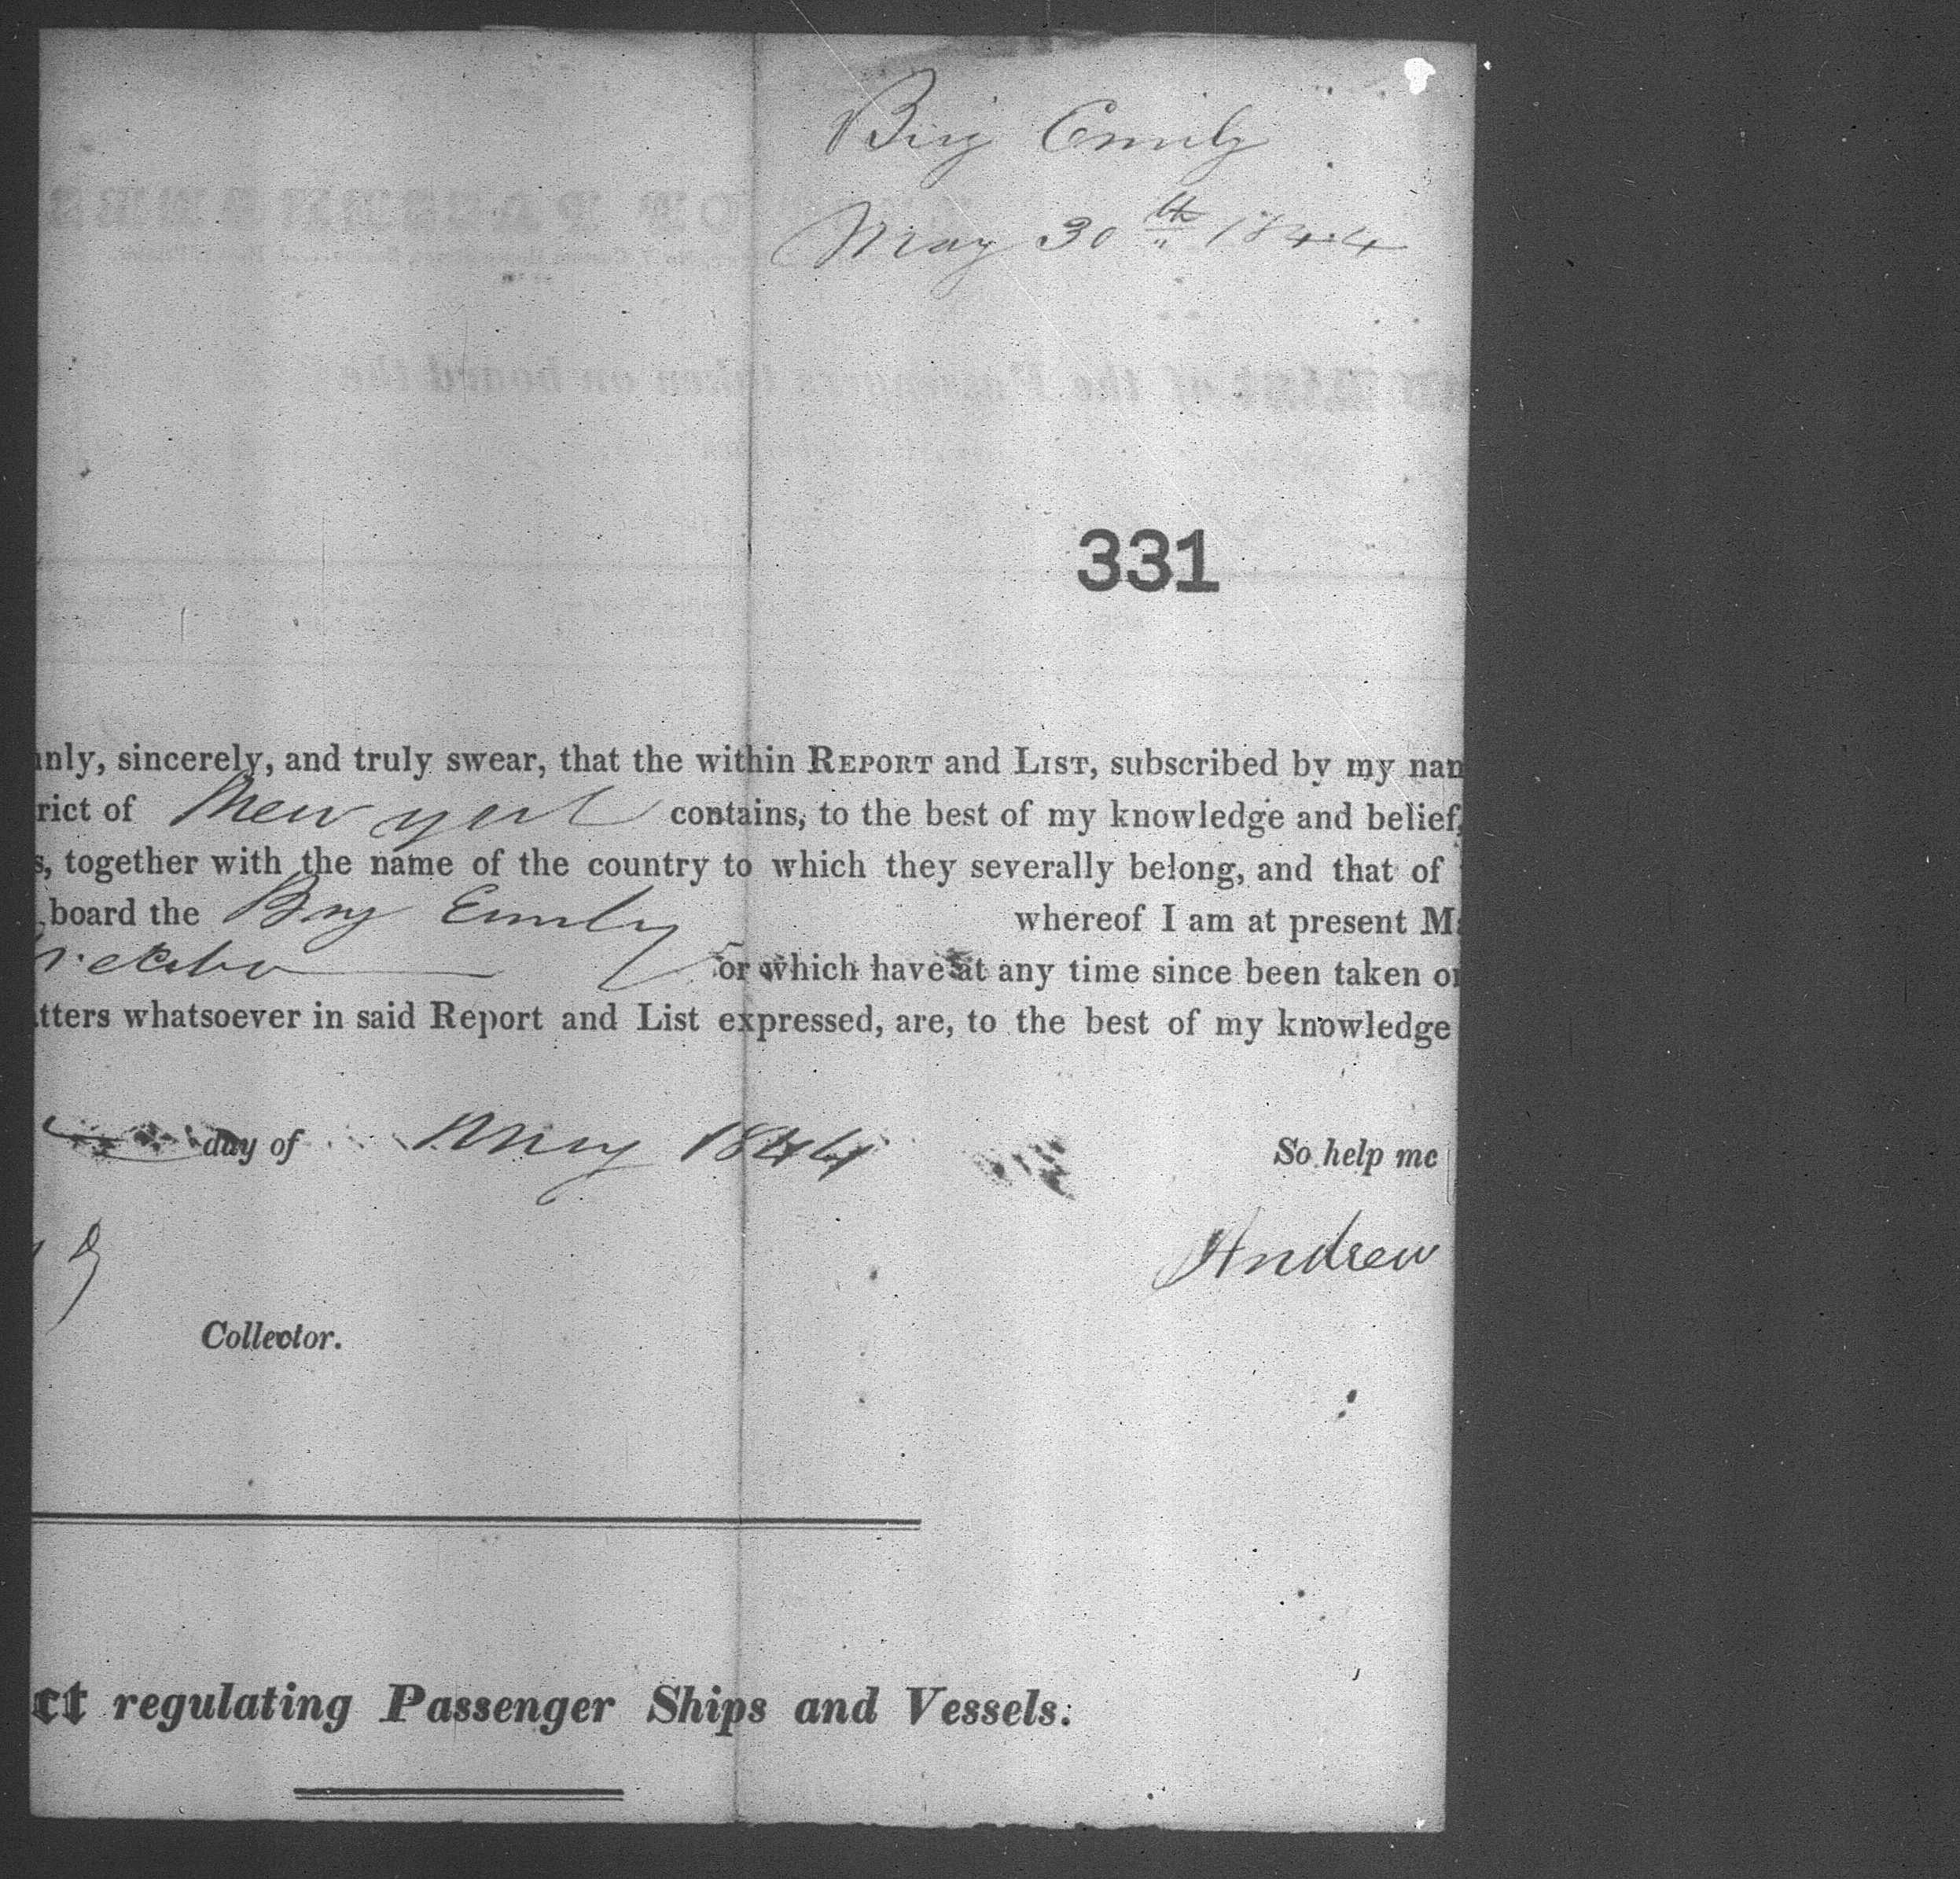 Brig Emily
May 30th 1844
331
nly, sincerely, and truly swear, that the within REPORT and LIST, subscribed by my nam
rict of New york contains, to the best of my knowledge and belief,
s, together with the name of the country to which they severally belong, and that of
board the Brig Emily whereof I am at present M
or which have at any time since been taken o
tters whatsoever in said Report and List expressed, are, to the best of my knowledge
day of May 1844 So help me
Andrew
Collector.
ct regulating Passenger Ships and Vessels.